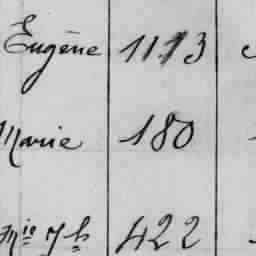 Eugène 1113
Marie 180
Mie Jh 422